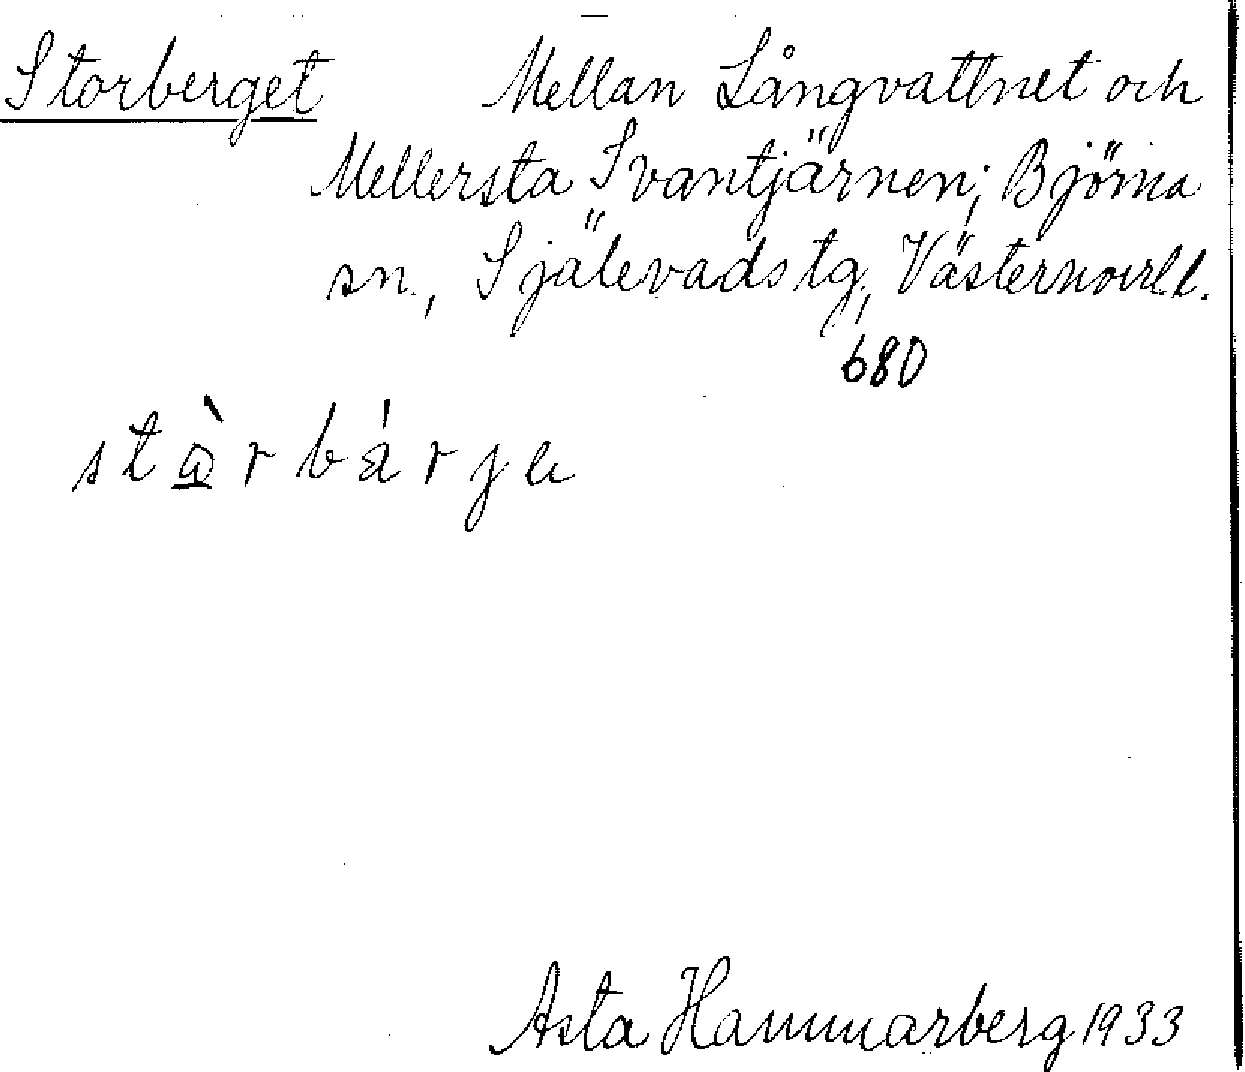 Storberget Mellan Långvattnet och
Mellersta Svantjärnen; Björna
sn., Själevads tg, Västernorrl.l.
680
stà̱rbárje
Asta Hammarberg 1933